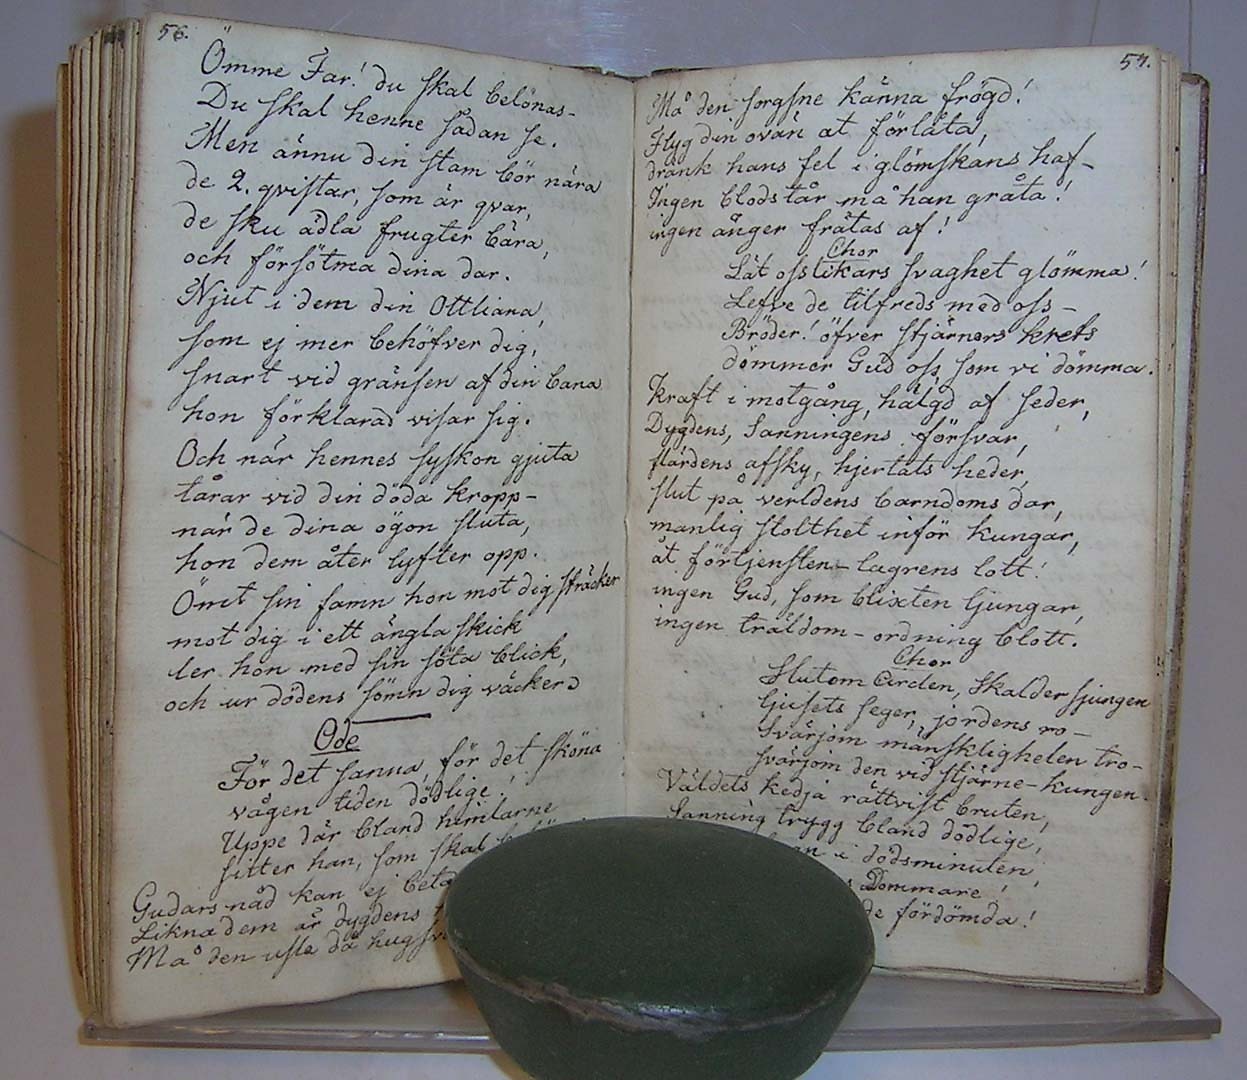 56.
Ömme Far! du skal belönas-
Du skal henne sådan se.
Men ännu din stam bör nära
de 2. qvistar, som är qvar,
de sku ädla frugter bära,
och försötma dina dar.
Njut i dem din Ottliana,
som ej mer behöfver dig,
snart vid gränsen af din bana
hon förklarad visar sig.
Och när hennes syskon gjuta
tårar vid din döda kropp-
när de dina ögon sluta,
hon dem åter lyfter opp.
Ömt sin famn hon mot dig sträcker
mot dig i ett ängla skick
ler hon med sin söta blick,
och ur dödens sömn dig väcker
Ode
För det sanna, för det sköna
vågen tiden dödlige!
Uppe där bland himlarne
sitter han, som skal
Gudars nåd kan ej
Likna dem är dygdens
Må den usle då
57.
Må den sorgsne känna frögd!
Flyg din ovän at förlåta,
dränk hans fel i glömskans haf-
Ingen blods tår må han gråta!
ingen ånger frätas af!
Chor
Låt oss likars svaghet glömma!
Lefve de tilfreds med oss-
Bröder! öfver stjärnors krets
dömmer Gud oss som vi dömma.
Kraft i motgång, hälgd af seder,
Dygdens, Sanningens försvar,
flärdens afsky, hjertats heder,
slut på verldens barndoms dar,
manlig stolthet inför kungar,
åt förtjensten-lagrens lott!
ingen Gud, som blixten ljungar,
ingen träldom-ordning blott.
Chor
Slutom Cirklen, Skalder sjungen
ljusets seger, jordens ro-
Svärjom mänskligheten tro-
svärjom den vid stjärne-kungen.
Väldets kedja rättvist bruten,
Sanning trygg bland dödlige,
i dödsminuten,
Dommare!
de fördömda!